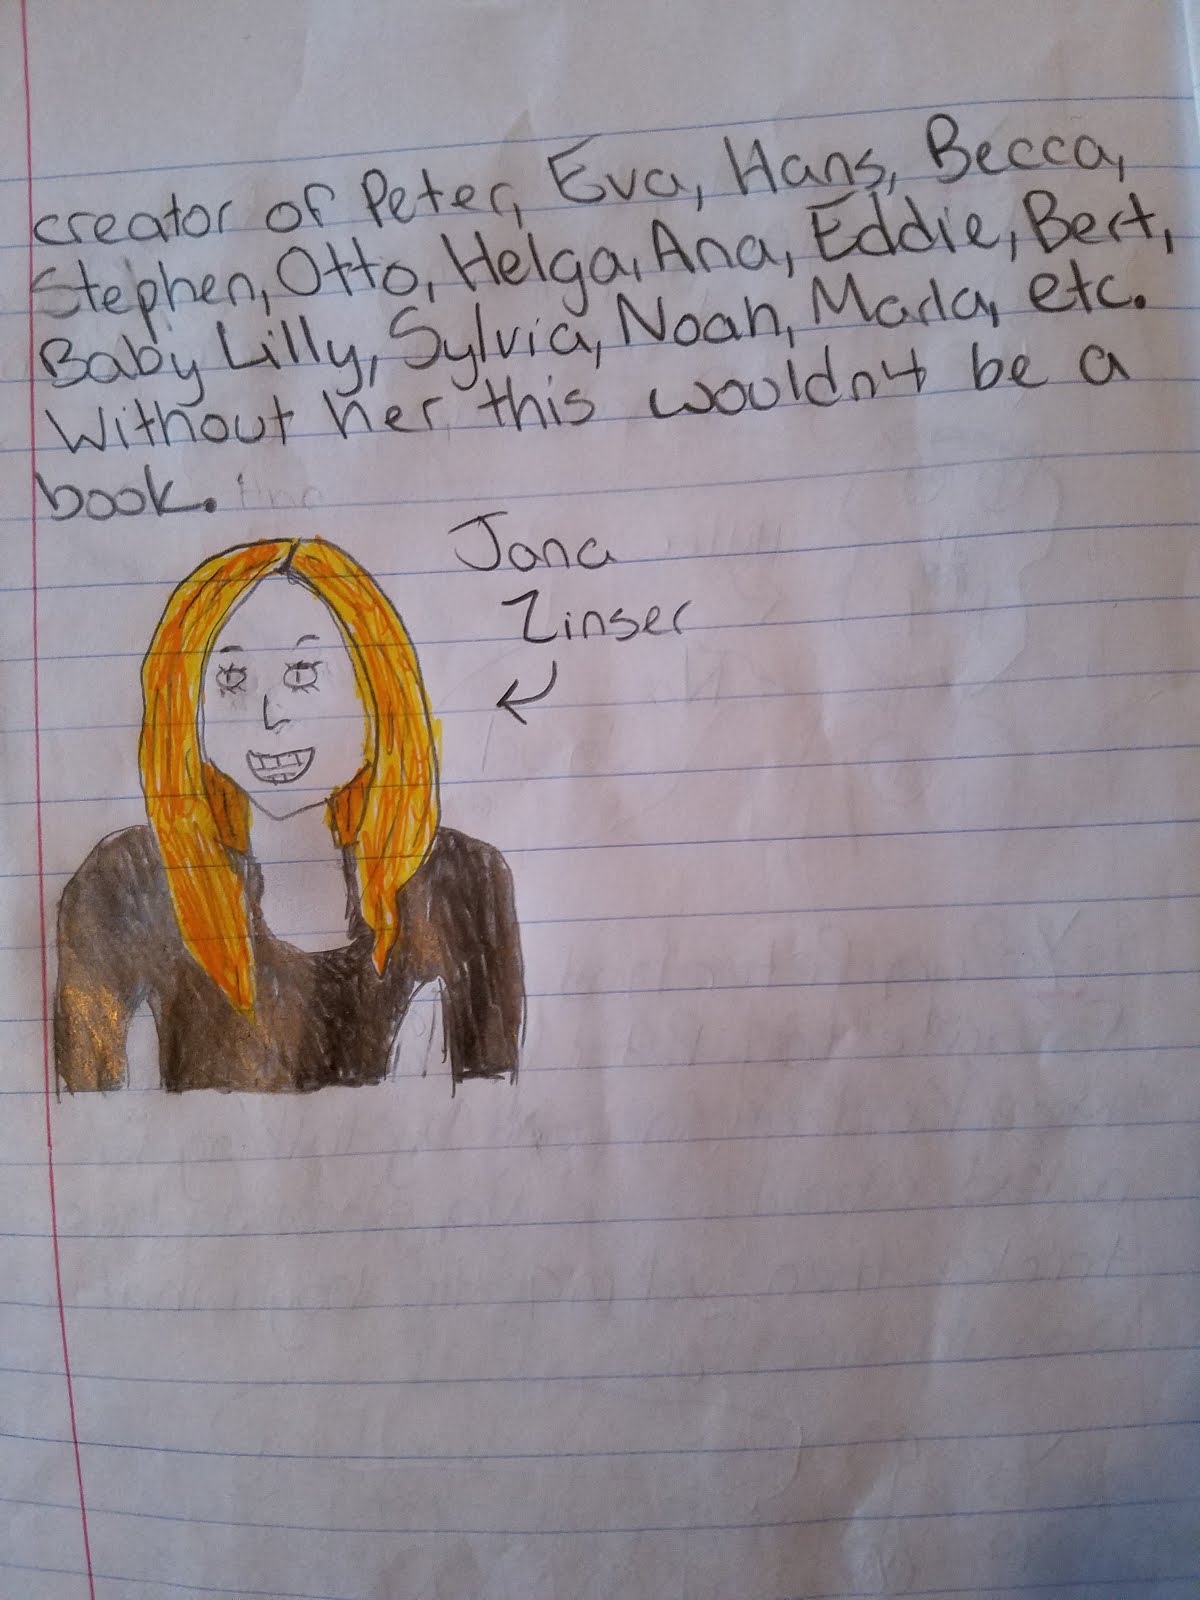 creator of Peter, Eva, Hans, Becca,
Stephen, Otto, Helga, Ana, Eddie, Bert,
Baby Lilly, Sylvia, Noah, Marla, etc.
Without her this wouldn't be a
book.
Jana
Zinser